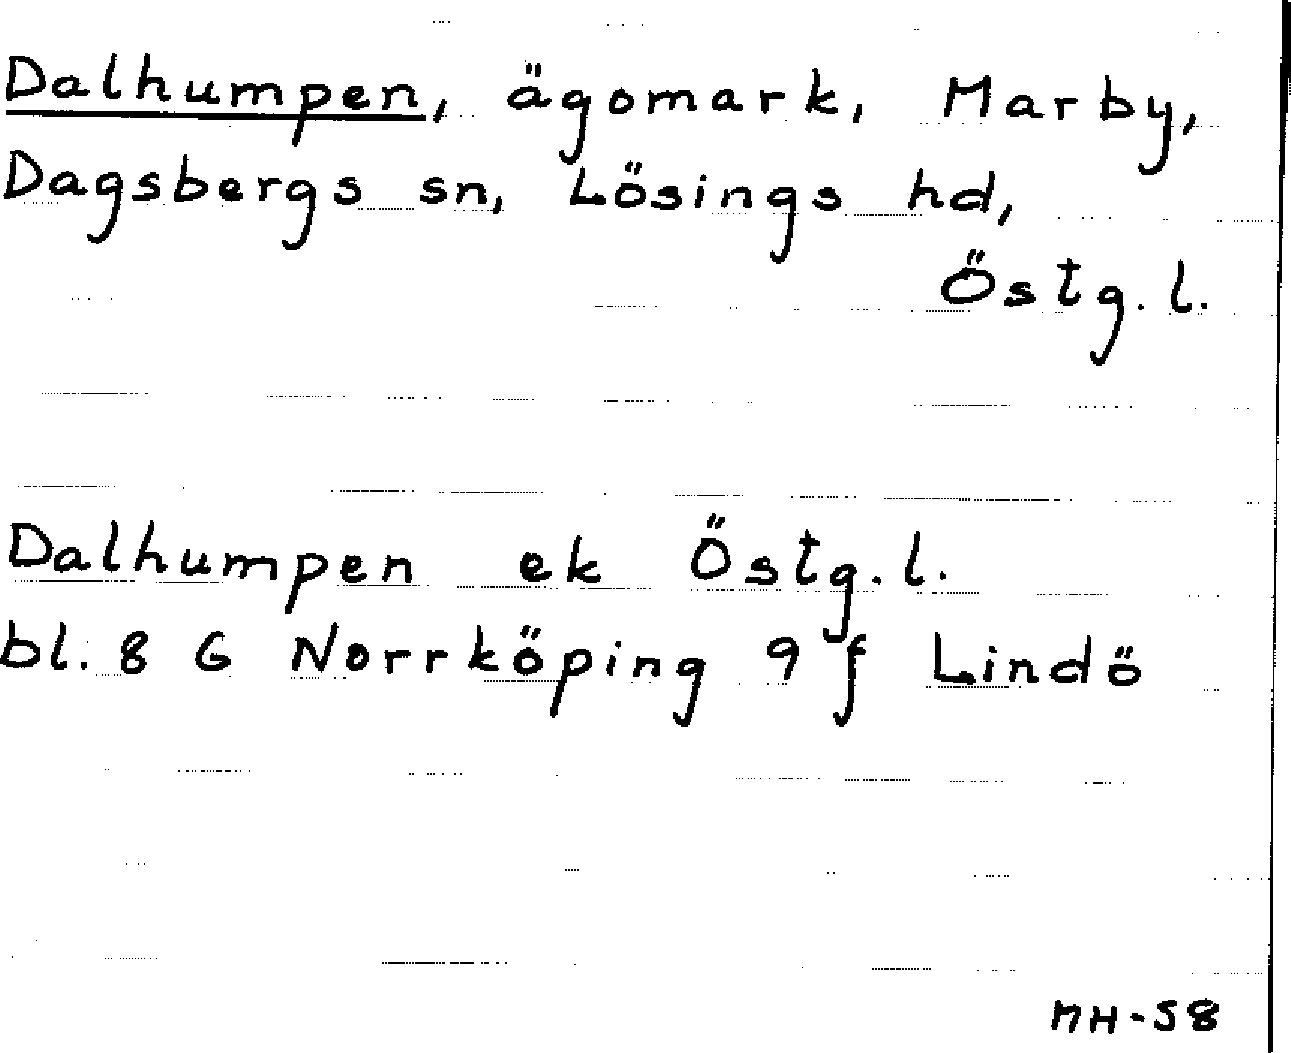 Dalhumpen, ägomark, Marby,
Dagsbergs sn, Lösings hd,
Östg.l.
Dalhumpen ek Östg.l.
bl. 8 G Norrköping 9 f Lindö
MH-58